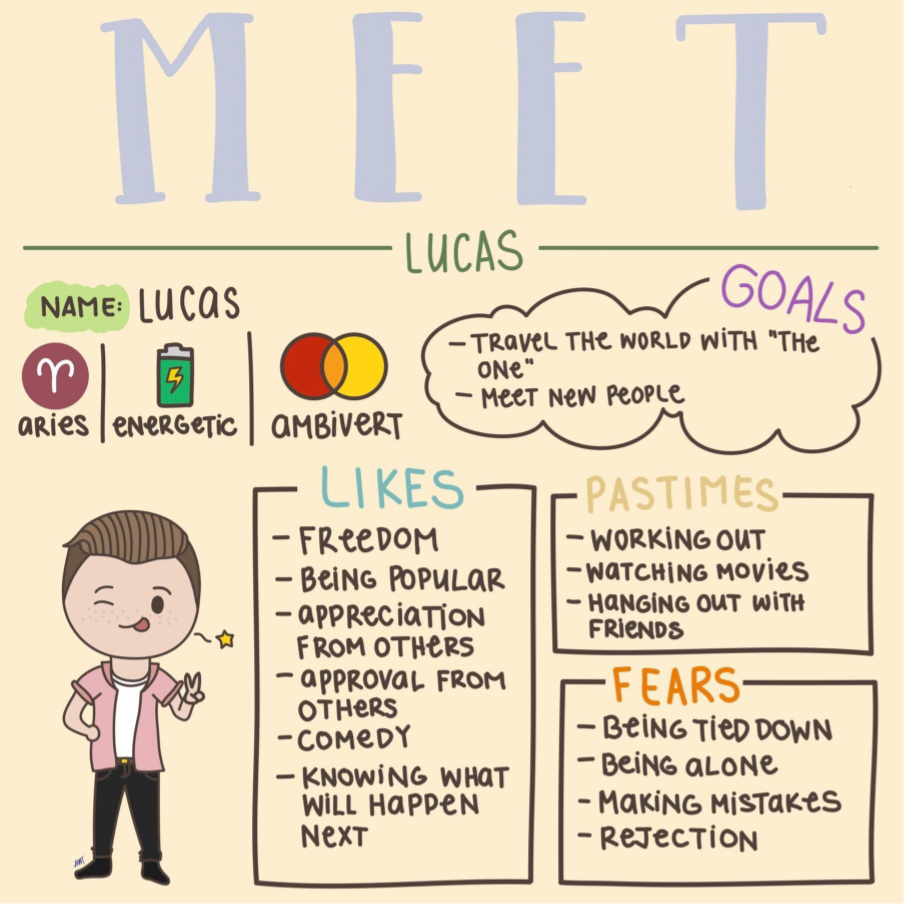 MEET
LUCAS
NAME: LUCAS
ARIES
ENERGETIC
AMBIVERT
GOALS
- TRAVEL THE WORLD WITH "THE
ONE"
- MEET NEW PEOPLE
LIKES
- FREEDOM
- BEING POPULAR
- APPRECIATION
FROM OTHERS
- APPROVAL FROM
OTHERS
- COMEDY
- KNOWING WHAT
WILL HAPPEN
NEXT
PASTIMES
- WORKING OUT
- WATCHING MOVIES
- HANGING OUT WITH
FRIENDS
FEARS
- BEING TIED DOWN
- BEING ALONE
- MAKING MISTAKES
- REJECTION